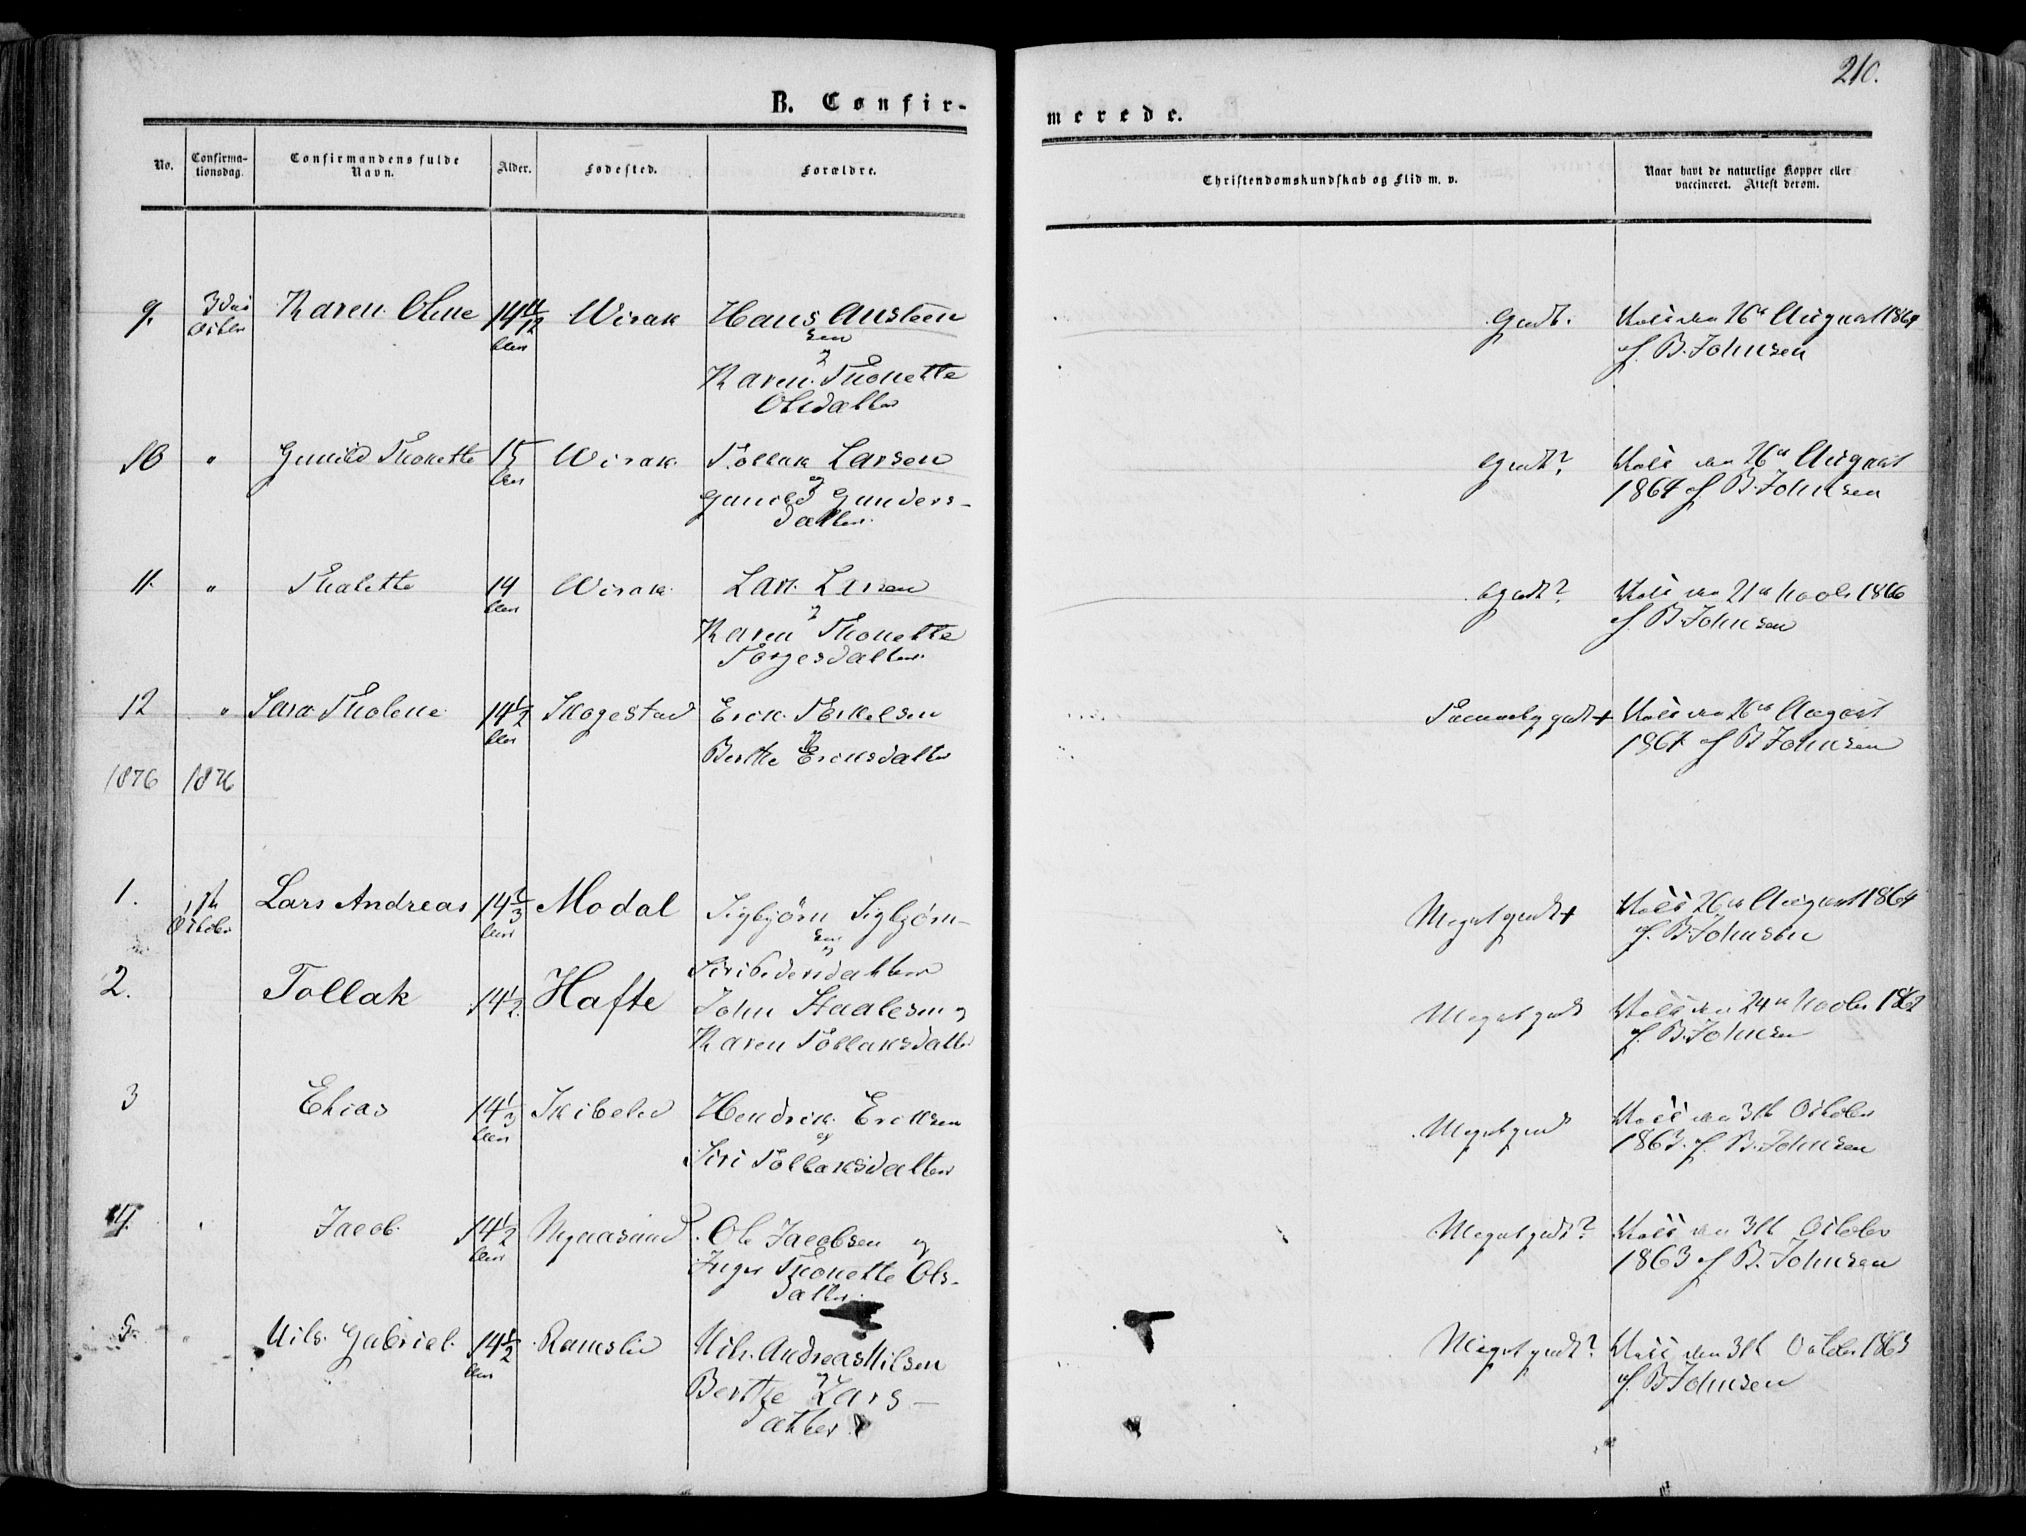 210.
B. Confir-
merede.
No.
Confirma-
tionsdag.
Confirmandens fulde
Navn.
Alder.
Fødested.
Forældre.
Christendomskundskab og Flid m. v.
Naar havt de naturlige Kopper eller
vaccineret. Attest derom.
9. 3die Karen Oline 14 11/12 Wirak Hans Austeen
sen
og
Karen Thonette
Olsdatter
Godt. den 26de August 1864
af B. Johnsen
10 " Gunild Thonette 15 Wirak Tollak Larsen
og
Gunild Gunders-
datter
Godt? den 26de August
1864 af B. Johnsen
11. " Thalette 14 Wirak Lars Larsen
og
Karen Thonette
Torgesdatter
Godt? den 21de Novbr 1866
af B. Johnsen
12 " Sara Tholene 14 1/2 Skogestad Erik Terkelsen
og
Berthe Eriksdatter
godt + den 26de August
1864 af B Johnsen
1876 1876
1. 1ste Lars Andreas 14 2/3 Modal Sigbjørn Sigbjørn-
October
sen
og
Siri Pedersdatter
Meget godt + 26de August 1864
af B. Johnsen
2. Tollak 14 1/2 Hafte John Staalesen og
Karen Tollaksdatter
Meget godt den 24de Novbr 1862
af B. Johnsen
3 Elias 14 1/3 Skibeled Hendrik Eriksen
og
Siri Tollaksdatter
Meget godt den 3de October
1863. af B. Johnsen
4. Jacob 14 1/2 Ole Jacobsen og
Inger Thonette Ols-
datter.
Meget godt? den 3de October
1863 af B. Johnsen
5. " Nils Gabriel 14 1/2 Ramslid Nils Andreas Nilsen
og
Berthe Lars-
datter
Meget godt? den 3de October 1863
af B Johnsen